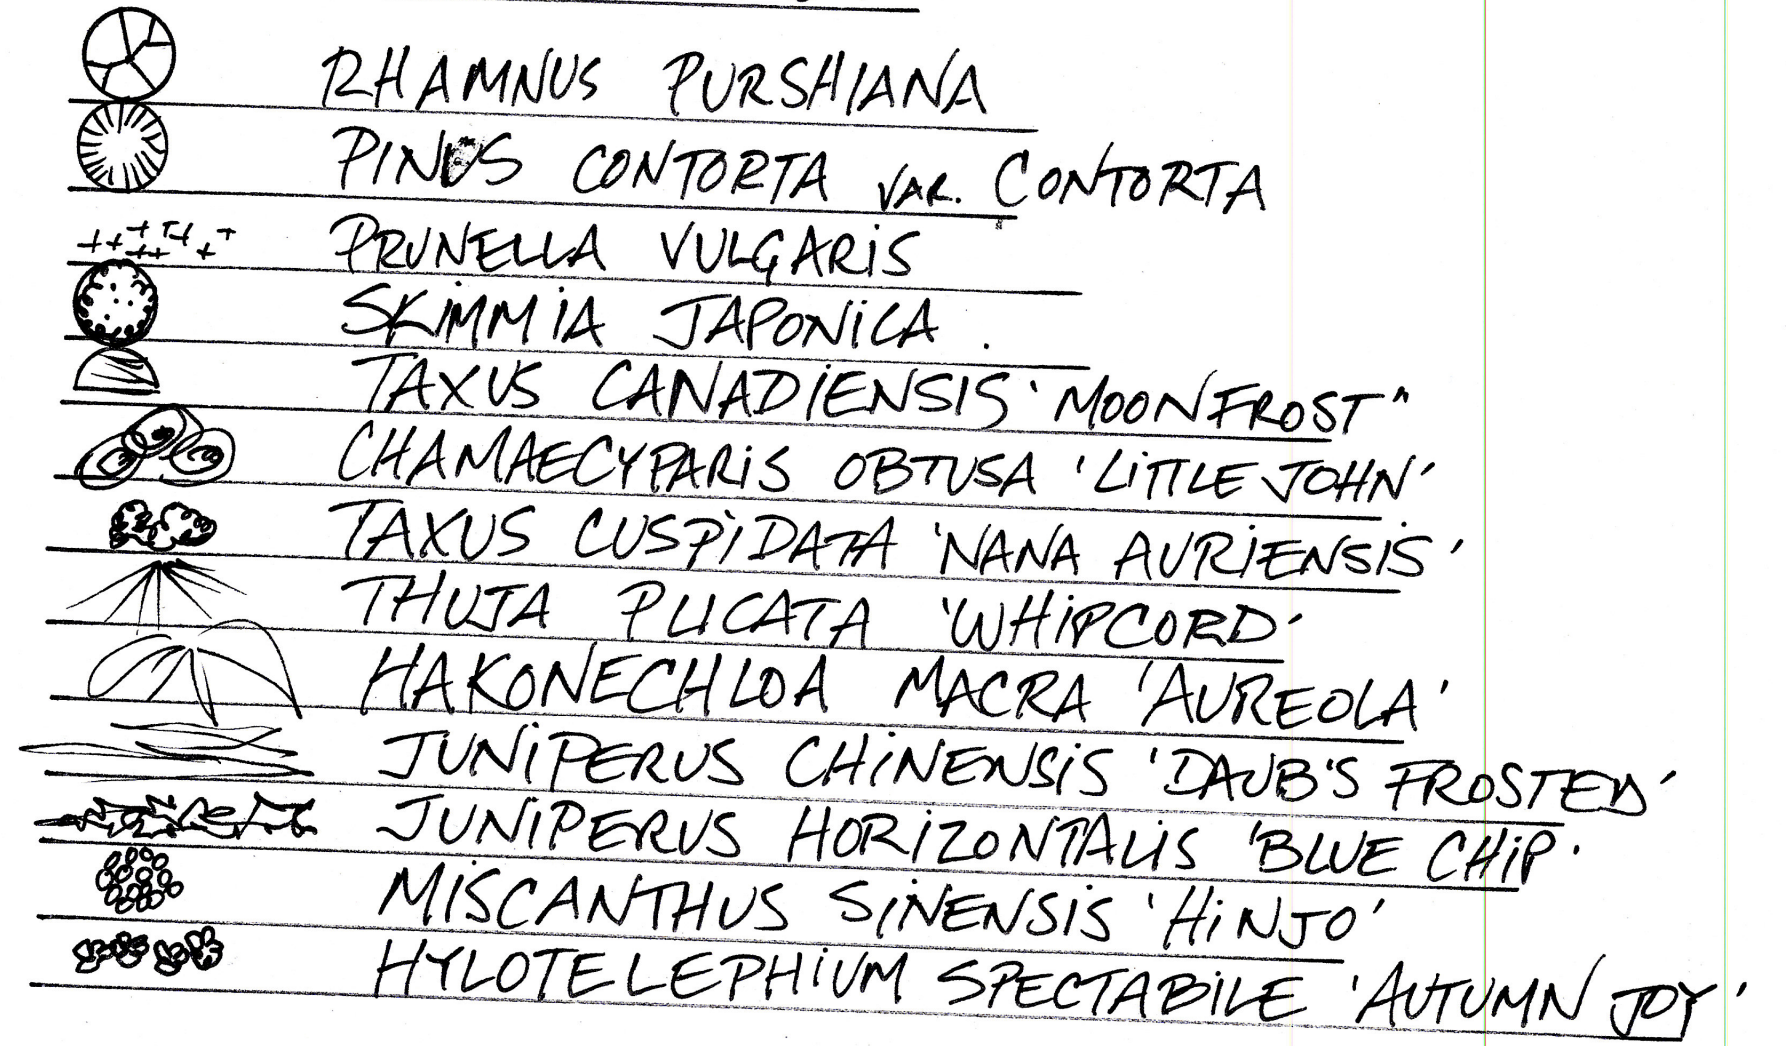 RHAMNUS PURSHIANA
PINUS CONTORTA VAR. CONTORTA
PRUNELLA VULGARIS
SKIMMIA JAPONICA .
TAXUS CANADIENSIS 'MOONFROST"
CHAMAECYPARIS OBTUSA 'LITTLE JOHN'
TAXUS CUSPIDATA 'NANA AURIENSIS'
THUJA PLICATA 'WHIPCORD'
HAKONECHLOA MACRA 'AUREOLA'
JUNIPERUS CHINENSIS 'DAUB'S FROSTED'
JUNIPERUS HORIZONTALIS 'BLUE CHIP'
MISCANTHUS SINENSIS 'HINJO'
HYLOTELEPHIUM SPECTABILE 'AUTUMN JOY'